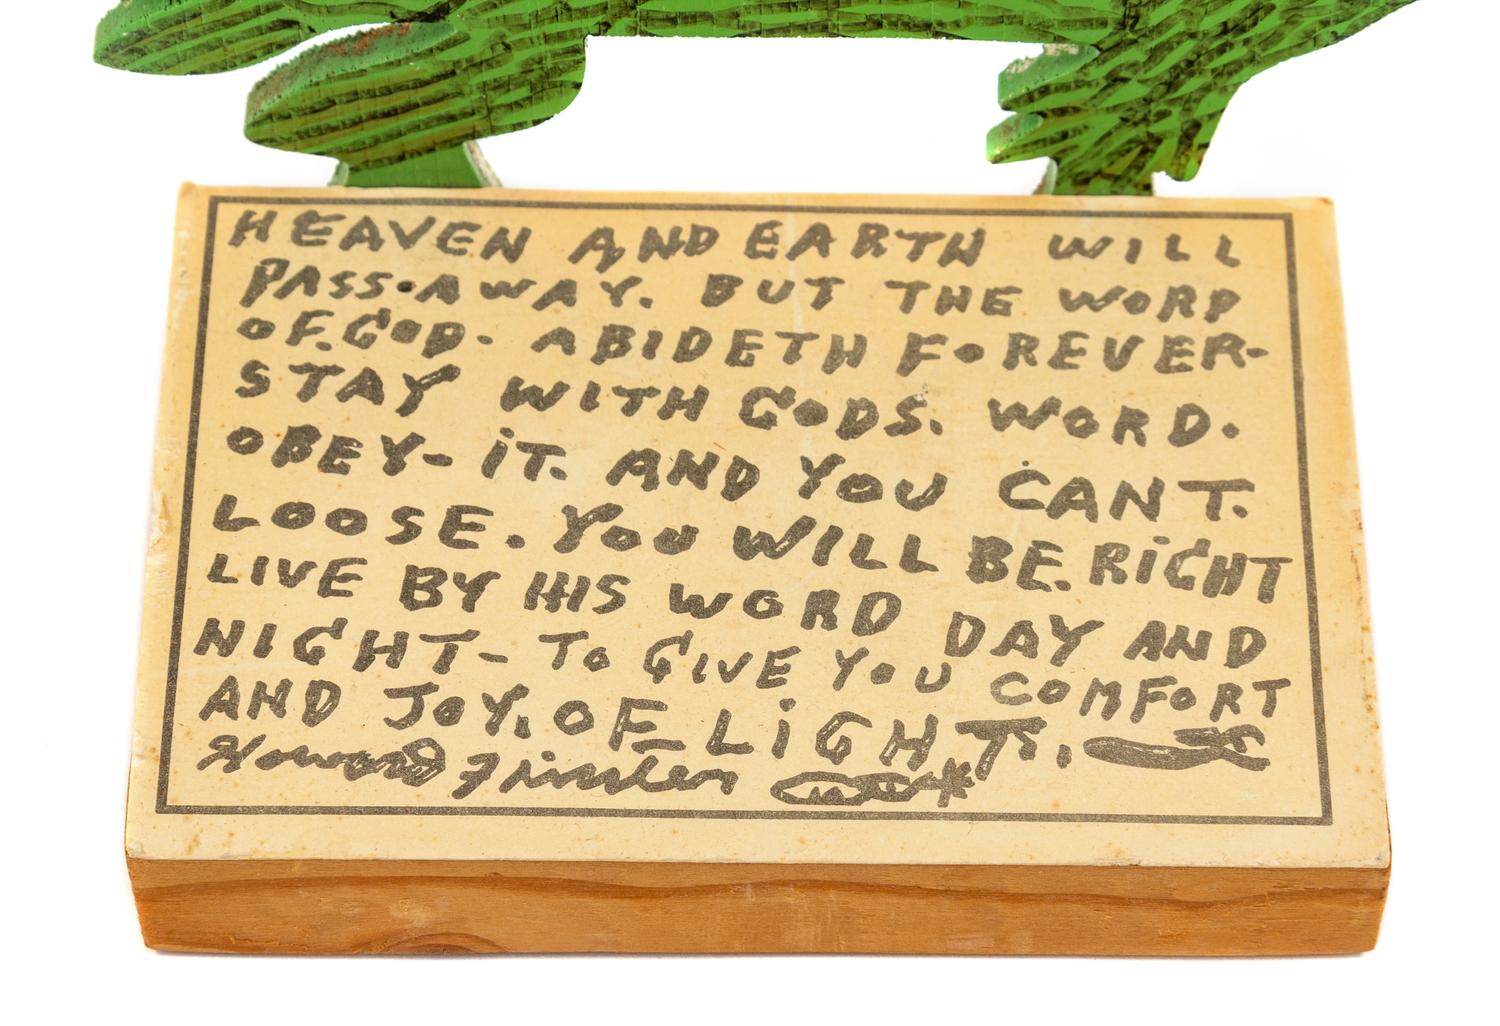 HEAVEN AND EARTH WILL
PASS.AWAY. BUT THE WORD
OF.GOD. ABIDETH FOREVER-
STAY WITH GODS. WORD.
OBEY- iT. AND YOU CAN'T.
LOOSE. YOU WILL BE. RiGHT
LIVE BY HIS WORD DAY AND
NIGHT- TO GIVE YOU COMFORT
AND JOY. OF LiGHTS.
Howard Finster